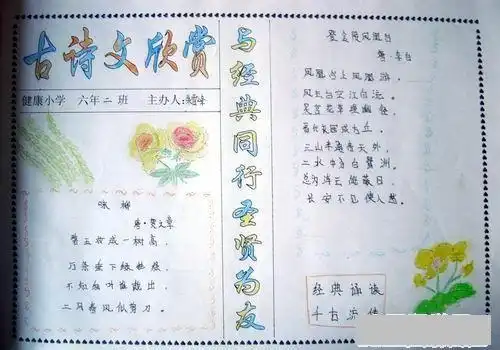 古诗文欣赏
健康小学 六年二班 主办人:
咏柳
唐·贺知章
碧玉妆成一树高，
万条垂下绿丝绦，
不知细叶谁裁出，
二月春风似剪刀。
与经典同行圣贤为友
登金陵凤凰台
唐·李白
凤凰台上凤凰游，
凤去台空江自流。
吴宫花草埋幽径，
晋代衣冠成古丘。
三山半落青天外，
二水中分白鹭洲。
总为浮云能蔽日，
长安不见使人愁。
经典诵读
千古流传